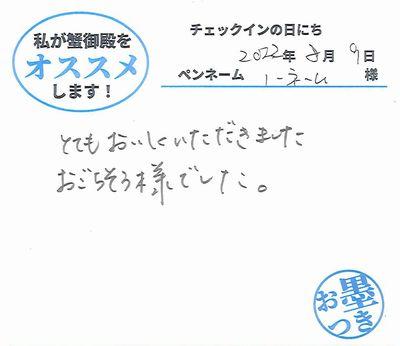 私が蟹御殿を
オススメ
します！
チェックインの日にち
2022年 8月 9日
ペンネーム ノーネーム 様
とてもおいしくいただきました
おごちそう様でした。
お墨
つき